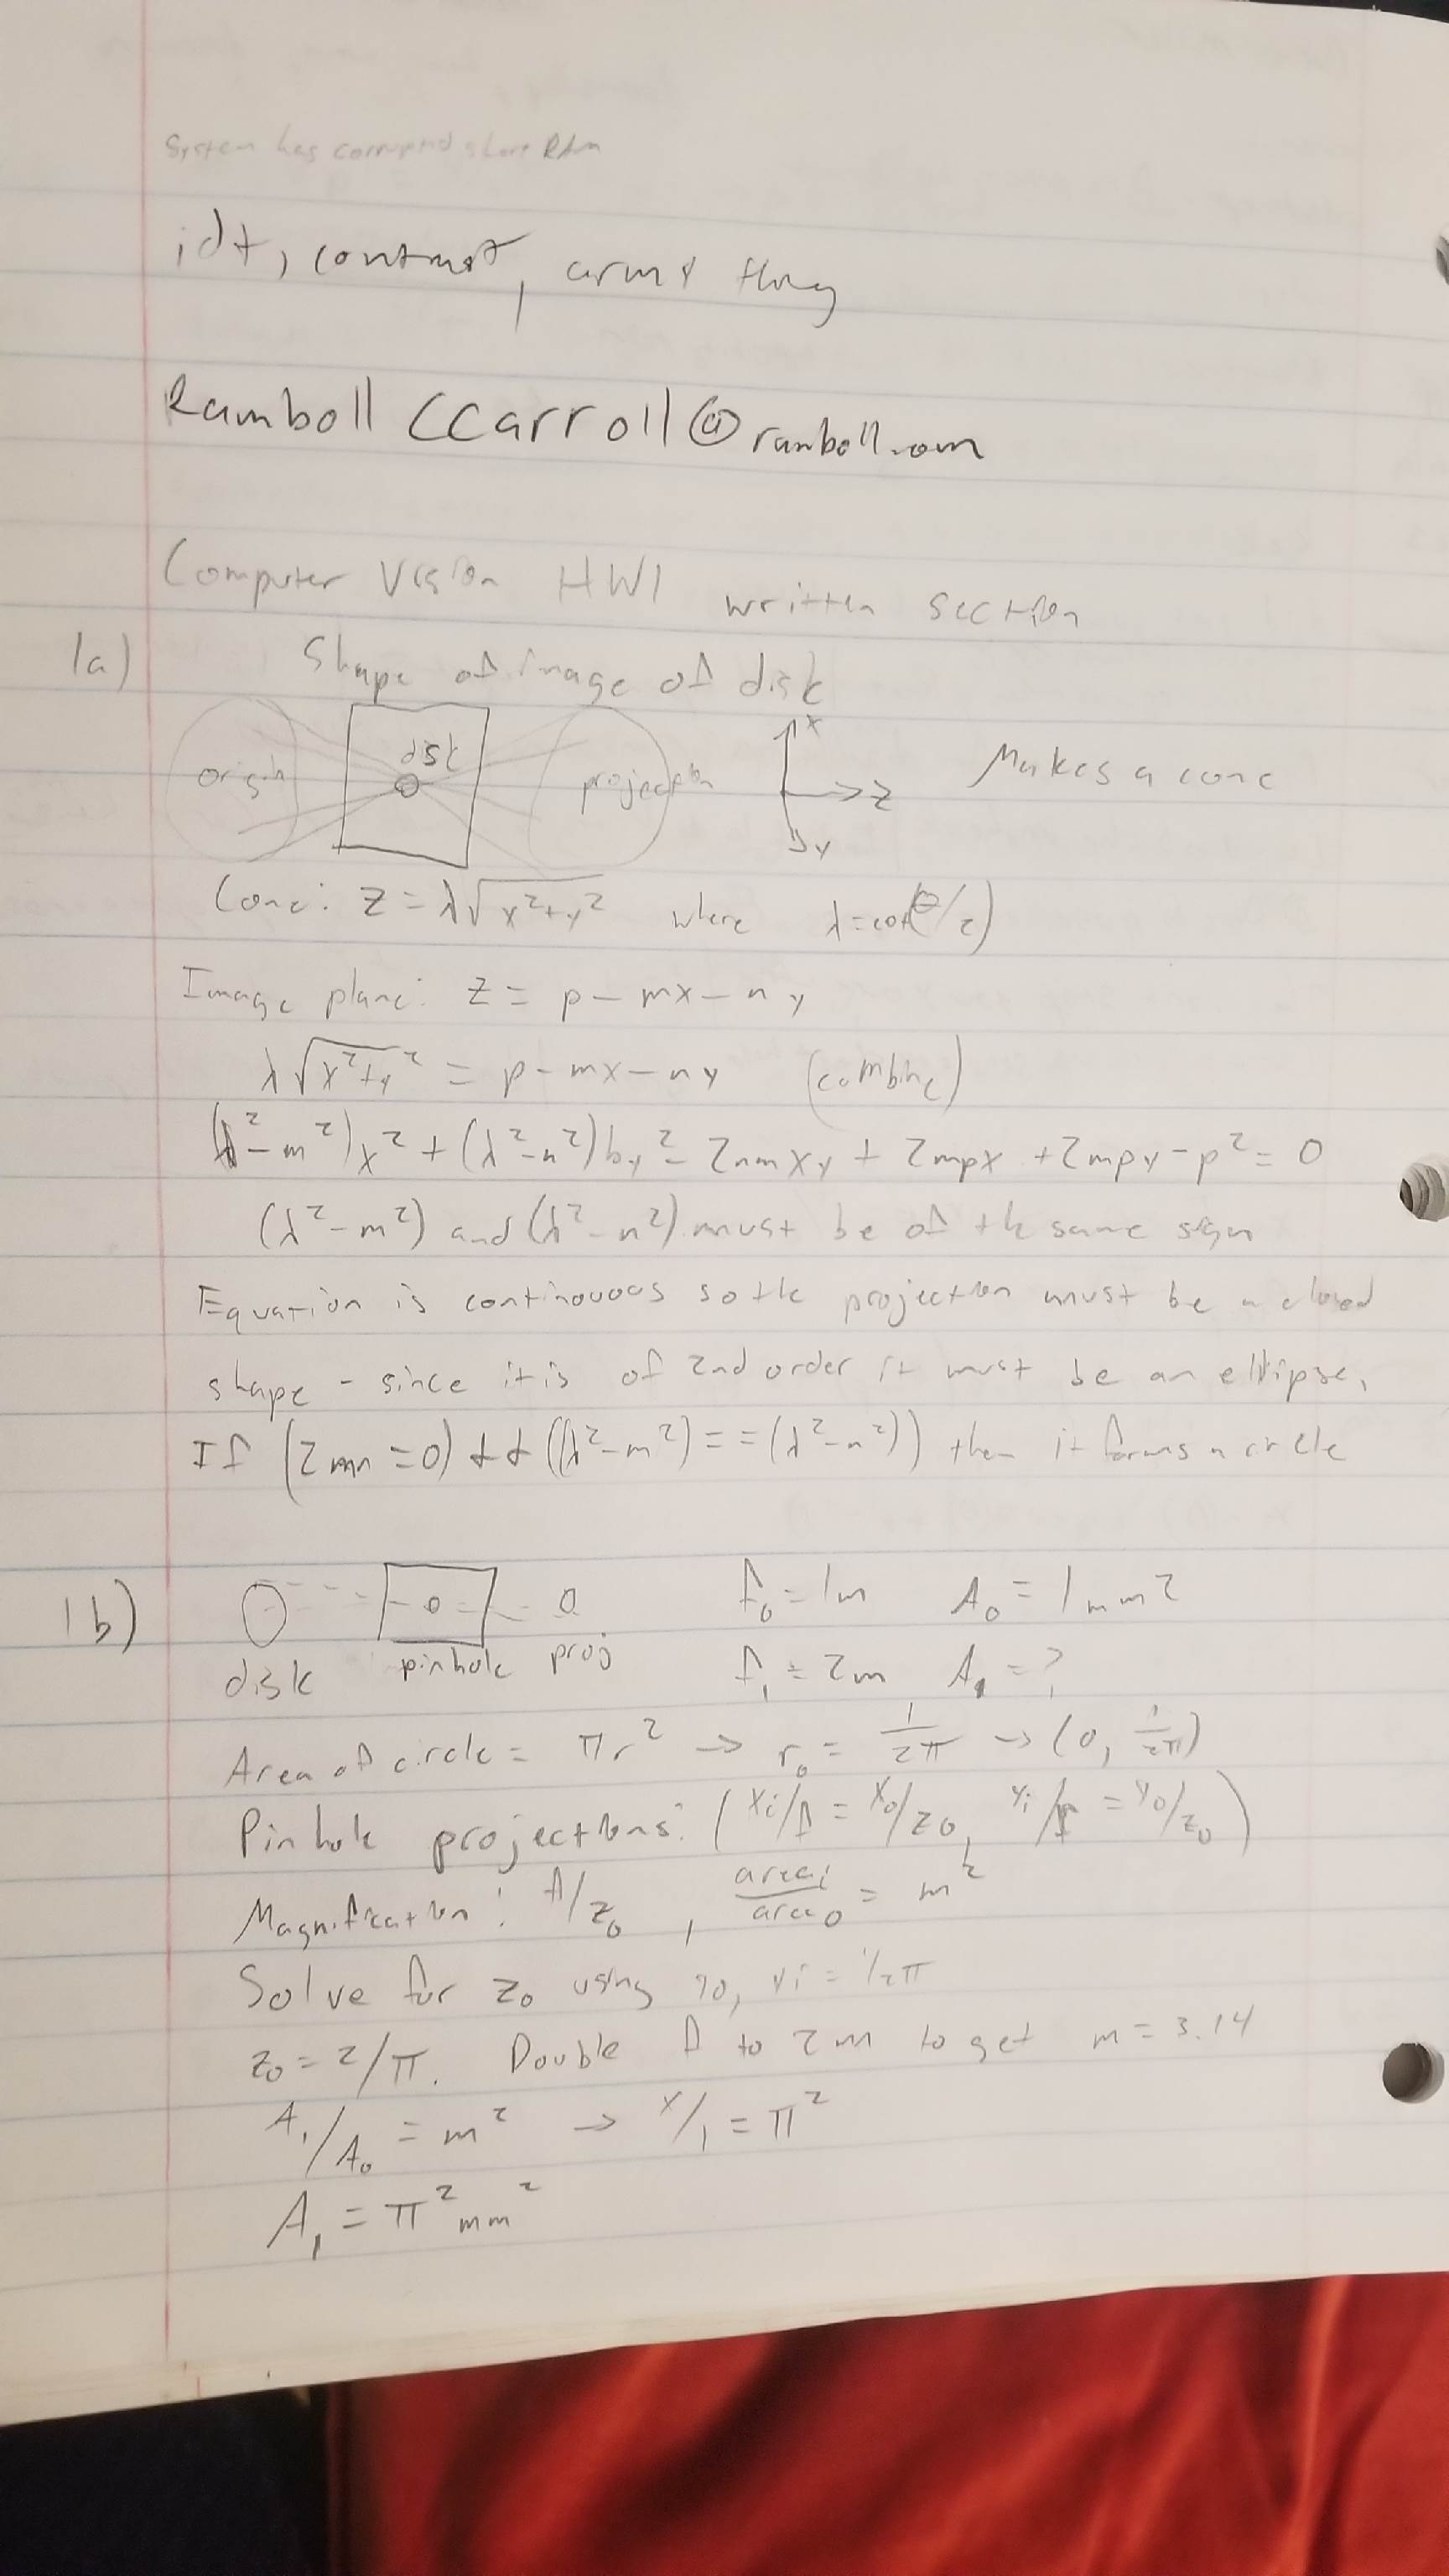 System has corrupted short RAM
idt, contrast, army thing
Ramboll CCarroll@ramboll.com
Computer Vision HW1 written section
1a) Shape of image of disk
origin disk projection x z y Makes a cone
Cone: z = λ√(x²+y²) where λ=cot(θ/2)
Image plane: z = p - mx - ny
λ√(x²+y²) = p - mx - ny (combine)
(λ²-m²)x² + (λ²-n²)by² - 2nmxy + 2mpx + 2mpy - p² = 0
(λ²-m²) and (λ²-n²) must be of the same sign
Equation is continouous so the projection must be a closed
shape - since it is of 2nd order it must be an ellipse.
If (2mn = 0) && ((λ²-m²) == (λ²-n²)) then it forms a circle
1b) disk pinhole proj f₀ = 1m A₀ = 1mm2
f₁ = 2m A₁ = ?
Area of circle = πr² → r₀ = 1/2π → (0, 1/2π)
Pinhole projections: (xi/f = x₀/z₀, yi/f = y₀/z₀)
Magnification: f/z₀, areai/area₀ = m²
Solve for z₀ using y₀, yi = 1/2π
z₀ = 2/π. Double f to 2m to get m = 3.14
A₁/A₀ = m² → x/1 = π²
A₁ = π² mm²